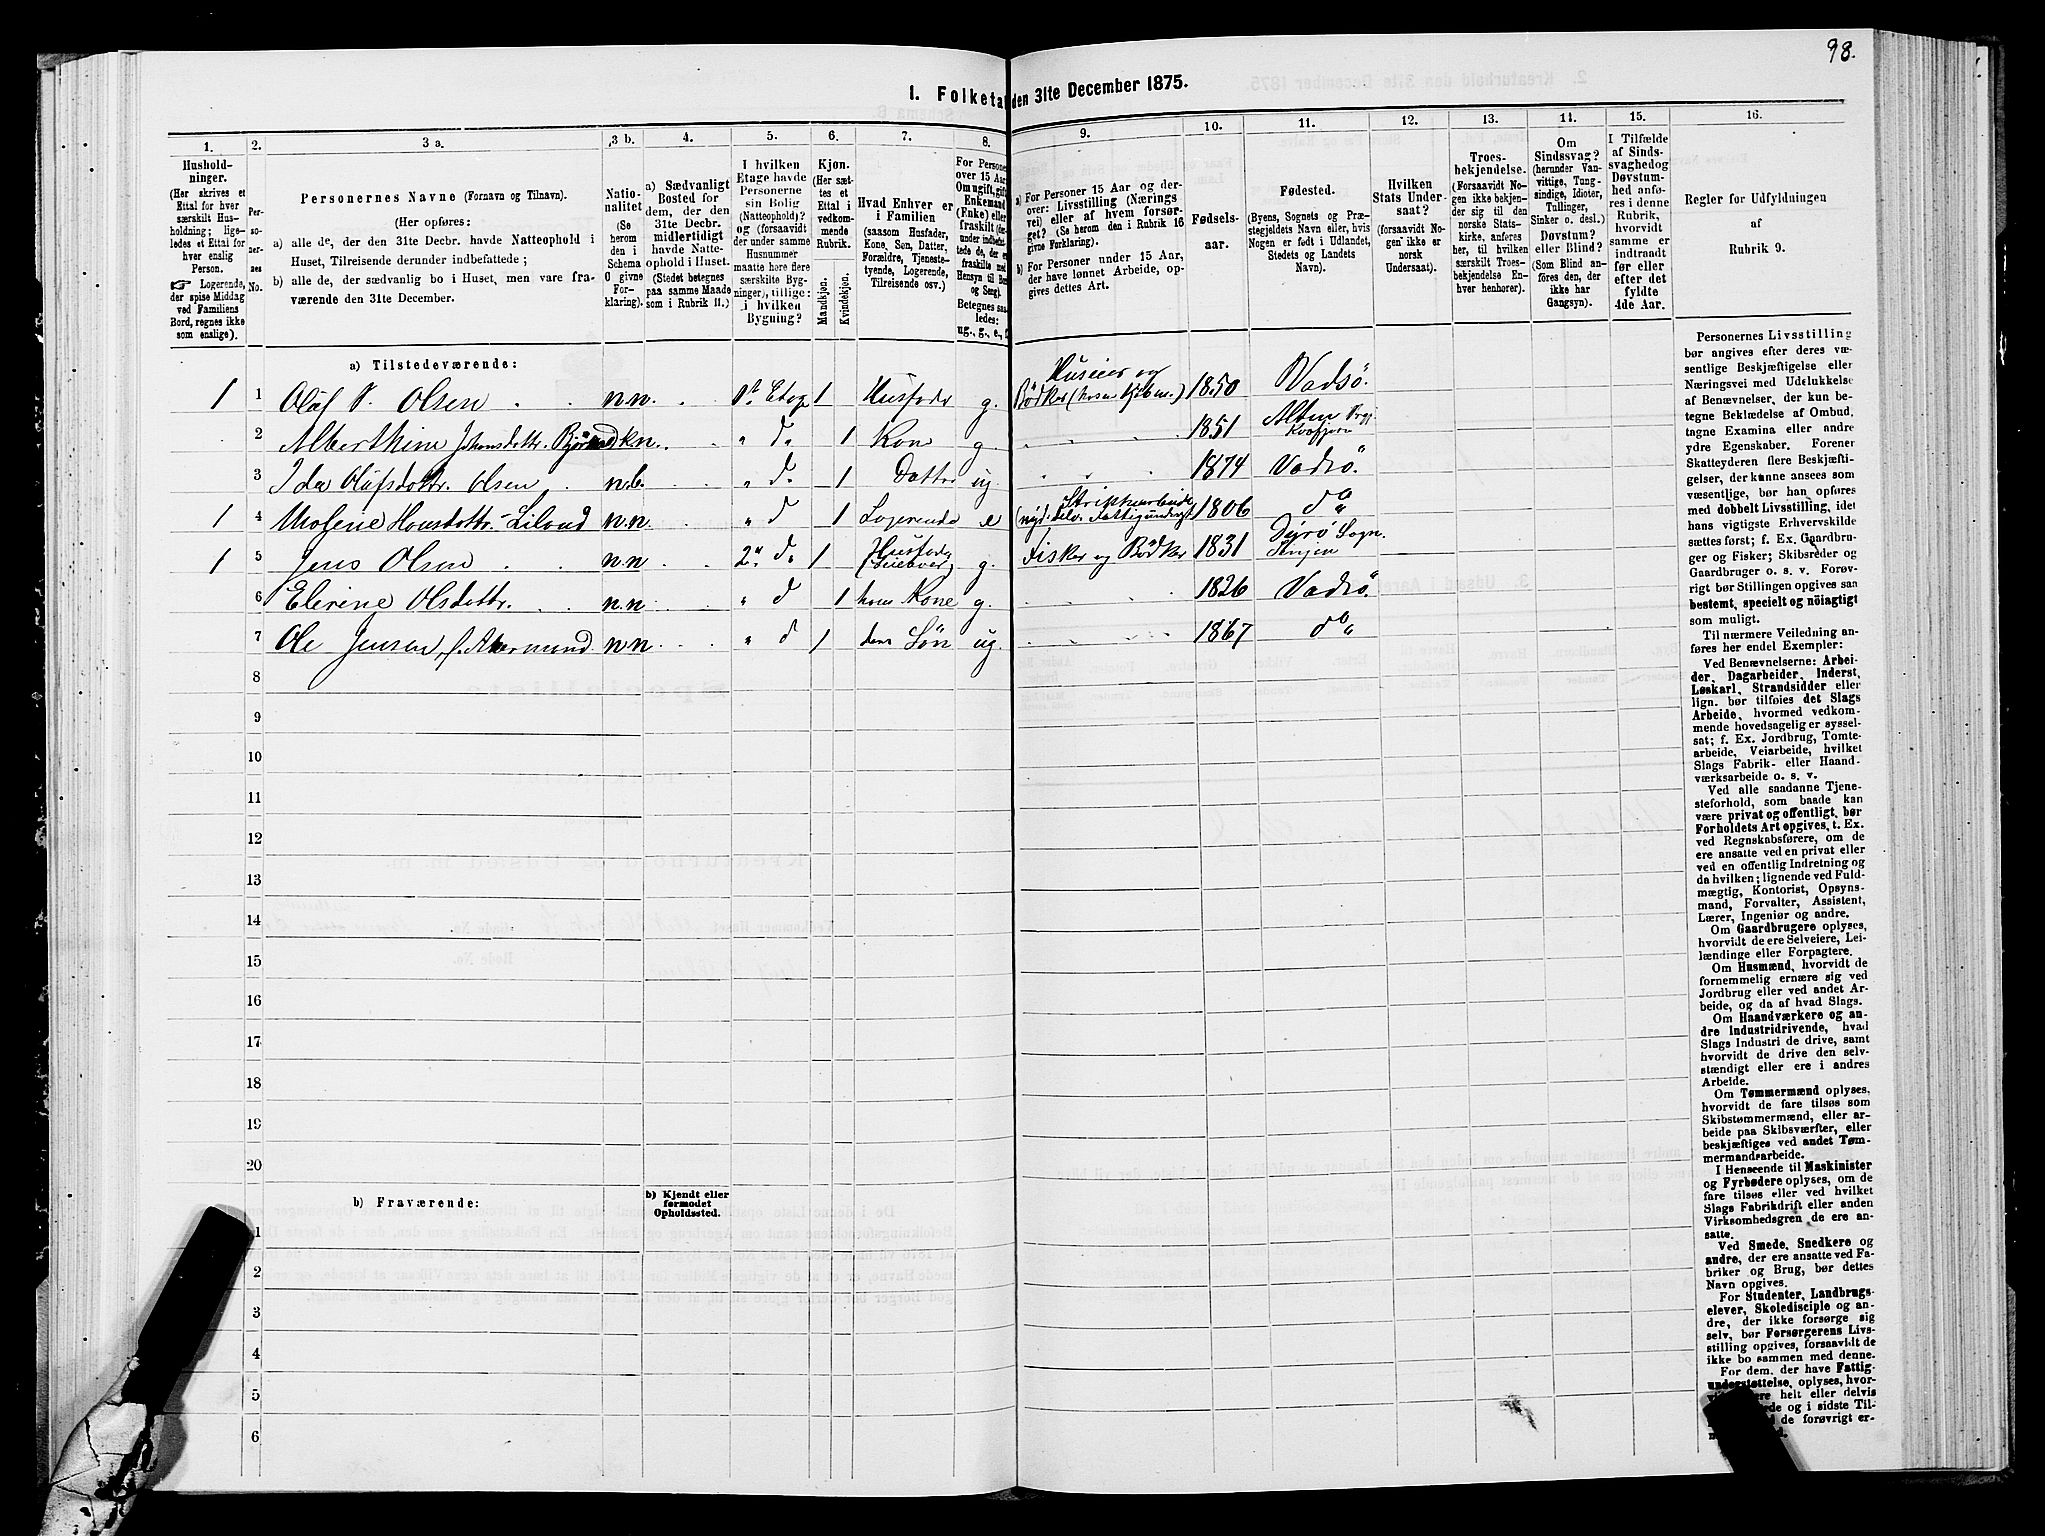 98.
1. Folketal den 31te December 1875.
1.
Hushold-
ninger.
(Her skrives et
Ettal for hver
særskilt Hus-
holdning; lige-
ledes et Ettal for
hver enslig
Person.
☞ Logerende,
der spise Middag
ved Familiens
Bord, regnes ikke
som enslige).
2.
Per-
so-
ner-
nes
No.
3 a.
Personernes Navne (Fornavn og Tilnavn).
(Her opføres:
a) alle de, der den 31te Decbr. havde Natteophold i
Huset, Tilreisende derunder indbefattede;
b) alle de, der sædvanlig bo i Huset, men vare fra-
værende den 31te December.
3 b.
Natio-
nalitet
(Se
herom
den i
Schema
O givne
For-
klaring).
4.
a) Sædvanligt
Bosted for
dem, der den
31te Decbr.
midlertidigt
havde Natte-
ophold i Huset.
(Stedet betegnes
paa samme Maade
som i Rubrik 11.)
5.
I hvilken
Etage havde
Personerne
sin Bolig
(Natteophold)?
og (forsaavidt
der under samme
Husnummer
maatte høre flere
særskilte Byg-
ninger), tillige:
i hvilken
Bygning?
6.
Kjøn.
(Her sæt-
tes et
Ettal i
vedkom-
mende
Rubrik.
Mandkjøn.
Kvindekjøn.
7.
Hvad Enhver er
i Familien
(saasom Husfader,
Kone, Søn, Datter,
Forældre, Tjeneste-
tyende, Logerende,
Tilreisende osv.)
8.
For Personer
over 15 Aar:
Om ugift, gift,
Enkemand
(Enke) eller
fraskilt
ledes:
ug., g., e.,
9.
a) For Personer 15 Aar og der-
over: Livsstilling (Nærings
vei) eller af hvem forsør-
get? (Se herom den i Rubrik 16
givne Forklaring).
b) For Personer under 15 Aar,
der have lønnet Arbeide, op-
gives dettes Art.
10.
Fødsels-
aar.
11.
Fødested.
(Byens, Sognets og Præ-
stegjeldets Navn eller, hvis
Nogen er født i Udlandet,
Stedets og Landets
Navn).
12.
Hvilken
Stats Under-
saat?
(forsaavidt No-
gen ikke er
norsk
Undersaat).
13.
Troes-
bekjendelse.
(Forsaavidt No-
gen ikke bekjen-
der sig til den
norske Stats-
kirke, anføres
her, til hvilken
særskilt Troes-
bekjendelse En-
hver henhører).
14.
Om
Sindssvag?
(herunder Van-
vittige, Tung-
sindige, Idioter,
Tullinger,
Sinker o. desl.)
Døvstum?
eller Blind?
(Som Blind an-
føres den, der
ikke har
Gangsyn).
15.
I Tilfælde
af Sinds-
svaghed og
Døvstum-
hed anfø-
res i denne
Rubrik,
hvorvidt
samme er
indtraadt
før eller
efter det
fyldte
4de Aar.
16.
Regler for Udfyldningen
af
Rubrik 9.
a) Tilstedeværende:
1 1 Oluf P. Olsen n.n. 1st Etage 1 Husfader g. Huseier og Bødker 1850 Vadsø.
2 Alberthine Johansdattr. kn. " do 1 Kone g. 1851 Alten
3 Ida Olufsdattr. Olsen n.b. " do 1 Datter ug. 1874 Vadsø.
1 4 Hansdattr. n.n. " do 1 Logerende e 1806 do
1 5 Jens Olsen n.n 2 " do 1 Husfader g. Fisker og Bødker 1831 Sogn. Senjen
6 Elerine Olsdattr. n.n " do 1 hans Kone g. 1826 Vadsø.
7 Ole Jensen n.n " do 1 deres Søn ug. 1867 do
8
9
10
11
12
13
14
15
16
17
18
19
20
b) Fraværende:
b) Kjendt eller
formodet
Opholdssted.
1
2
3
4
5
6
Personernes Livsstilling
bør angives efter deres væ-
sentlige Beskjæftigelse eller
Næringsvei med Udelukkelse
af Benævnelser, der kun be-
tegne Beklædelse af Ombud,
tagne Examina eller andre
ydre Egenskaber. Forener
Skatteyderen flere Beskjæfti-
gelser, der kunne ansees som
væsentlige, bør han opføres
med dobbelt Livsstilling, idet
hans vigtigste Erhvervskilde
sættes først; f. Ex. Gaardbru-
ger og Fisker; Skibsreder og
Gaardbruger o. s. v. Forøv-
rigt bør Stillingen opgives saa
bestemt, specielt og nöiagtigt
som muligt.
Til nærmere Veiledning an-
føres her endel Exempler:
Ved Benævnelserne: Arbei-
der, Dagarbeider, Inderst,
Løskarl, Strandsidder eller
lign. bør tilføies det Slags
Arbeide, hvormed vedkom-
mende hovedsagelig er syssel-
sat; f. Ex. Jordbrug, Tomte-
arbeide, Veiarbeide, hvilket
Slags Fabrik- eller Haand-
værksarbeide o. s. v.
Ved alle saadanne Tjene-
steforhold, som baade kan
være privat og offentligt, bør
Forholdets Art opgives, t. Ex.
ved Regnskabsførere, om de
ere ansatte ved en privat eller
ved en offentlig Indretning og
da hvilken; lignende ved Fuld-
mægtig, Kontorist, Opsyns-
mand, Forvalter, Assistent,
Lærer, Ingeniør og andre.
Om Gaardbrugere oplyses,
hvorvidt de ere Selveiere, Lei-
lændinge eller Forpagtere.
Om Husmænd, hvorvidt de
fornemmelig ernære sig ved
Jordbrug eller ved andet Ar-
beide, og da af hvad Slags.
Om Haandværkere og an-
dre Industridrivende, hvad
Slags Industri de drive, samt
hvorvidt de drive den selv-
stændigt eller ere i andres
Arbeide.
Om Tømmermænd oplyses,
hvorvidt de fare tilsøs som
Skibstømmermænd, eller ar-
beide paa Skibsværfter, eller
beskjæftiges ved andet Tøm-
mermandsarbeide.
I Henseende til Maskinister
og Fyrbødere oplyses, om de
fare tilsøs eller ved hvilket
Slags Fabrikdrift eller anden
Virksomhedsgren de ere an-
satte.
Ved Smede, Snedkere og
andre, der ere ansatte ved Fa-
briker og Brug, bør dettes
Navn opgives.
For Studenter, Landbrugs-
elever, Skoledisciple og an-
dre, der ikke forsørge sig
selv, bør Forsørgerens Livs-
stilling opgives, forsaavidt de
ikke bo sammen med denne.
For dem, der have Fattig-
understøttelse, oplyses, hvor-
helt eller delvis
og i sidste Til-
de forøvrigt er-